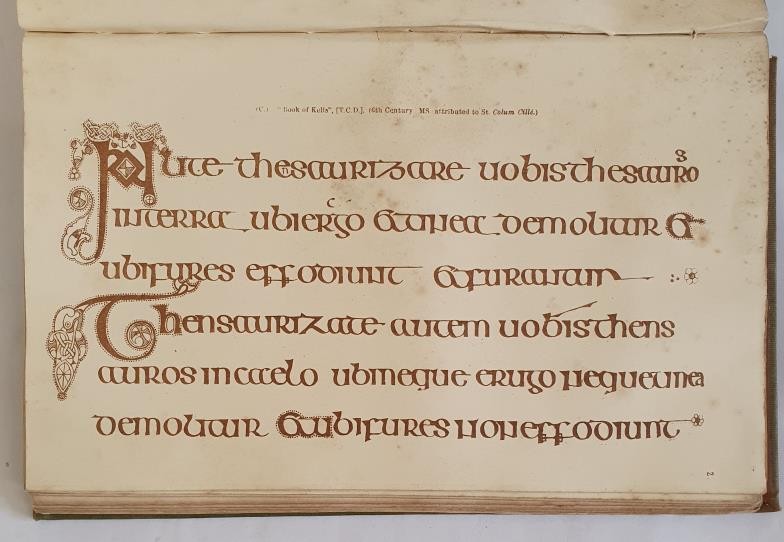 (C.) "Book of Kells", [T.C.D.], (6th Century MS. attributed to St. Colum Cillé.)
Nute thesaurizare uobis thesauros
in terra ubi ergo & tinea demolitur &
ubi fures effodiunt & furantur
Thensaurizate autem uobis thens
auros in caelo ubi neque erugo neque tinea
demolitur & ubi fures non effodiunt
2